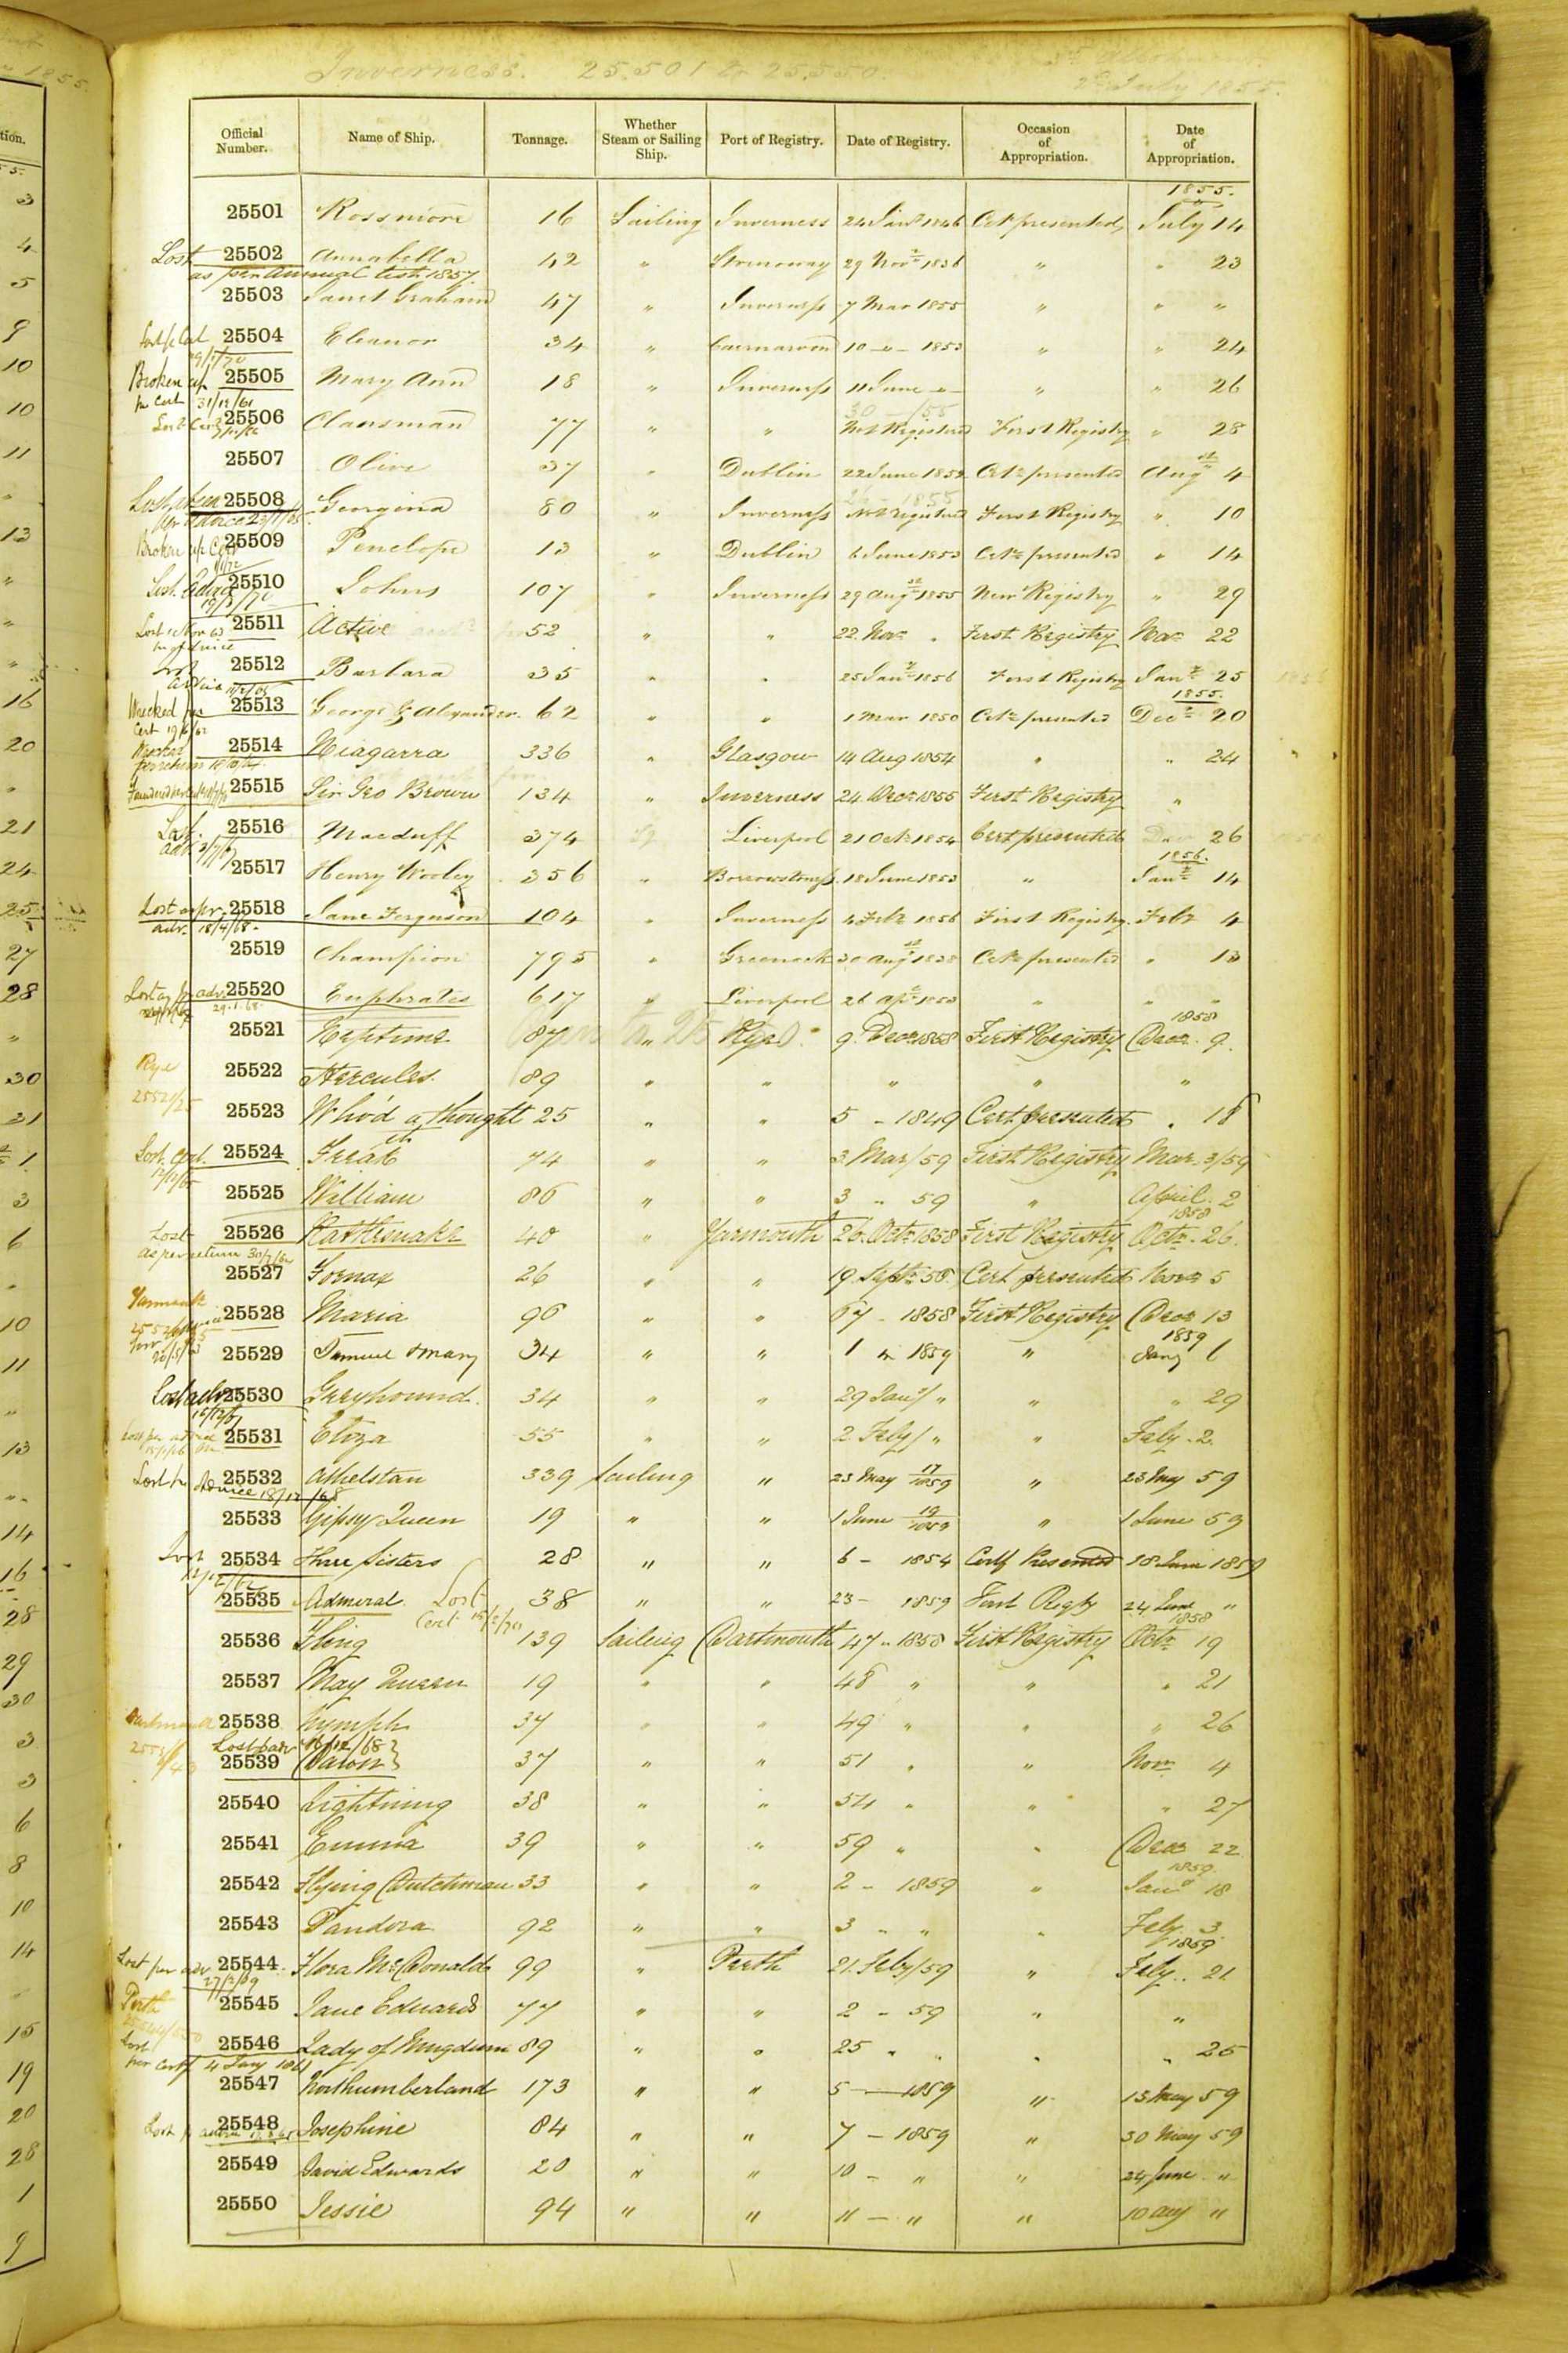 Inverness. 25.501 to 25.550.
July 1855.
Official Number. Name of Ship. Tonnage. Whether Steam or Sailing Ship. Port of Registry. Date of Registry. Occasion of Appropriation. Date of Appropriation.
1855.
25501 Rossmore 16 Sailing Inverness 24 Jan 1846 Cert presented July 14
Lost 25502 Annabella 42 " Stornoway 29 Nov 1836 " " 23
as per Annual List 1857
25503 Janet Graham 47 " Inverness 7 Mar 1855 " " "
25504 Eleanor 34 " Caernarvon 10 " 1853 " " 24
Broken up 25505 Mary Ann 18 " Inverness 11 June " " " 26
per Cert 31/12/61
30 - /55
25506 Clansman 77 " " Not Registered First Registry " 28
25507 Olive 37 " Dublin 22 June 1852 Cert presented Augt 4
1855
25508 Georgina 80 " Inverness Not registered First Registry " 10
Broken up Cert 25509 Penelope 13 " Dublin 6 June 1853 Cert presented " 14
Lost. Advice 25510 Johns 107 " Inverness 29 Augt 1855 New Registry " 29
25511 Active 52 " " 22 Nov " First Registry Nov 22
Lost 25512 Barbara 35 " " 25 Jany 1856 First Registry Jany 25
advice
1855.
Wrecked per 25513 George & Alexander. 62 " " 1 Mar 1850 Cert presented Decr 20
Cert 19/6/62
25514 Niagarra 336 " Glasgow 14 Aug 1854 " " 24
25515 Sir Geo Brown 134 " Inverness 24 Decr 1855 First Registry "
Lost. 25516 Macduff 374 " Liverpool 21 Octr 1854 Cert presented Dec 26
1856.
25517 Henry Wooley 356 " Borrowstoness 18 June 1853 " Jany 14
Lost as pr 25518 Jane Ferguson 104 " Inverness 4 Feb 1856 First Registry. Feb 4
adv. 18/4/68
25519 Champion 795 " Greenock 30 Augt 1838 Cert presented " 13
Lost as pr adv 25520 Euphrates 617 " Liverpool 26 Apr 1853 " " "
29.1.68
1858
25521 Neptune 87 " Rye 9 Decr 1858 First Registry Decr 9.
Rye
25522 Hercules. 89 " " " " "
25521/25
25523 Who'd a thought 25 " " 5 - 1849 Cert presented " 18
Lost. Cert. 25524 74 " " 3 Mar/59 First Registry Mar. 3/59
25525 William 86 " " 3 " 59 " April 2
1858
Lost 25526 Rattlesnake 40 " Yarmouth 26. Octr 1858 First Registry Octr. 26.
as per return
25527 Fornax 26 " " 19 Sept 56. Cert presented Novr 5
Yarmouth
25528 Maria 96 " " 67 - 1858 First Registry Decr 13
1859
25529 Samuel & Mary 34 " " 1 " 1859 " Jany 1
Lost adv 25530 Greyhound. 34 " " 29 Jany/ " " " 29
25531 Eliza 55 " " 2 Feby/ " " Feby. 2.
Lost per 25532 Athelstan 339 Sailing " 23 May 17/1859 " 23 May 59
Advice 18/12/68
25533 Gipsy Queen 19 " " 1 June 19/1859 " 1 June 59
Lost 25534 Three Sisters 28 " " 6 - 1854 Certf Presented 18 June 1859
25535 Admiral Lost 38 " " 23 - 1859 First Regty 24 June "
Cert 15/2/70
1858
25536 Fling 139 Sailing Dartmouth 47 " 1858 First Registry Octr 19
25537 May Queen 19 " " 48 " " " 21
Dartmouth 25538 Nymph 37 " " 49 " " " 26
Lost p adv 16/12/68
25539 Dawn 37 " " 51 " " Novr 4
25540 Lightning 38 " " 54 " " " 27
25541 Emma 39 " " 59 " " Decr 22
1859.
25542 Flying Dutchman 33 " " 2 - 1859 " Jany 18
25543 Pandora 92 " " 3 " " " Feby 3.
1859
Lost per adv 25544 Flora McDonald 99 " Perth 21. Feby/59 " Feby. 21
27/2/69
Perth 25545 Jane Edwards 77 " " 2 - 59 " "
Lost 25546 Lady of Mugdrum 89 " " 25 " " " " 25
per Certf 4 Jany 1861
25547 Northumberland 173 " " 5 - 1859 " 13 May 59
Lost p advice 25548 Josephine 84 " " 7 - 1859 " 30 May 59
25549 David Edwards 20 " " 10 - " " 24 June "
25550 Jessie 94 " " 11 - " " 10 Aug "